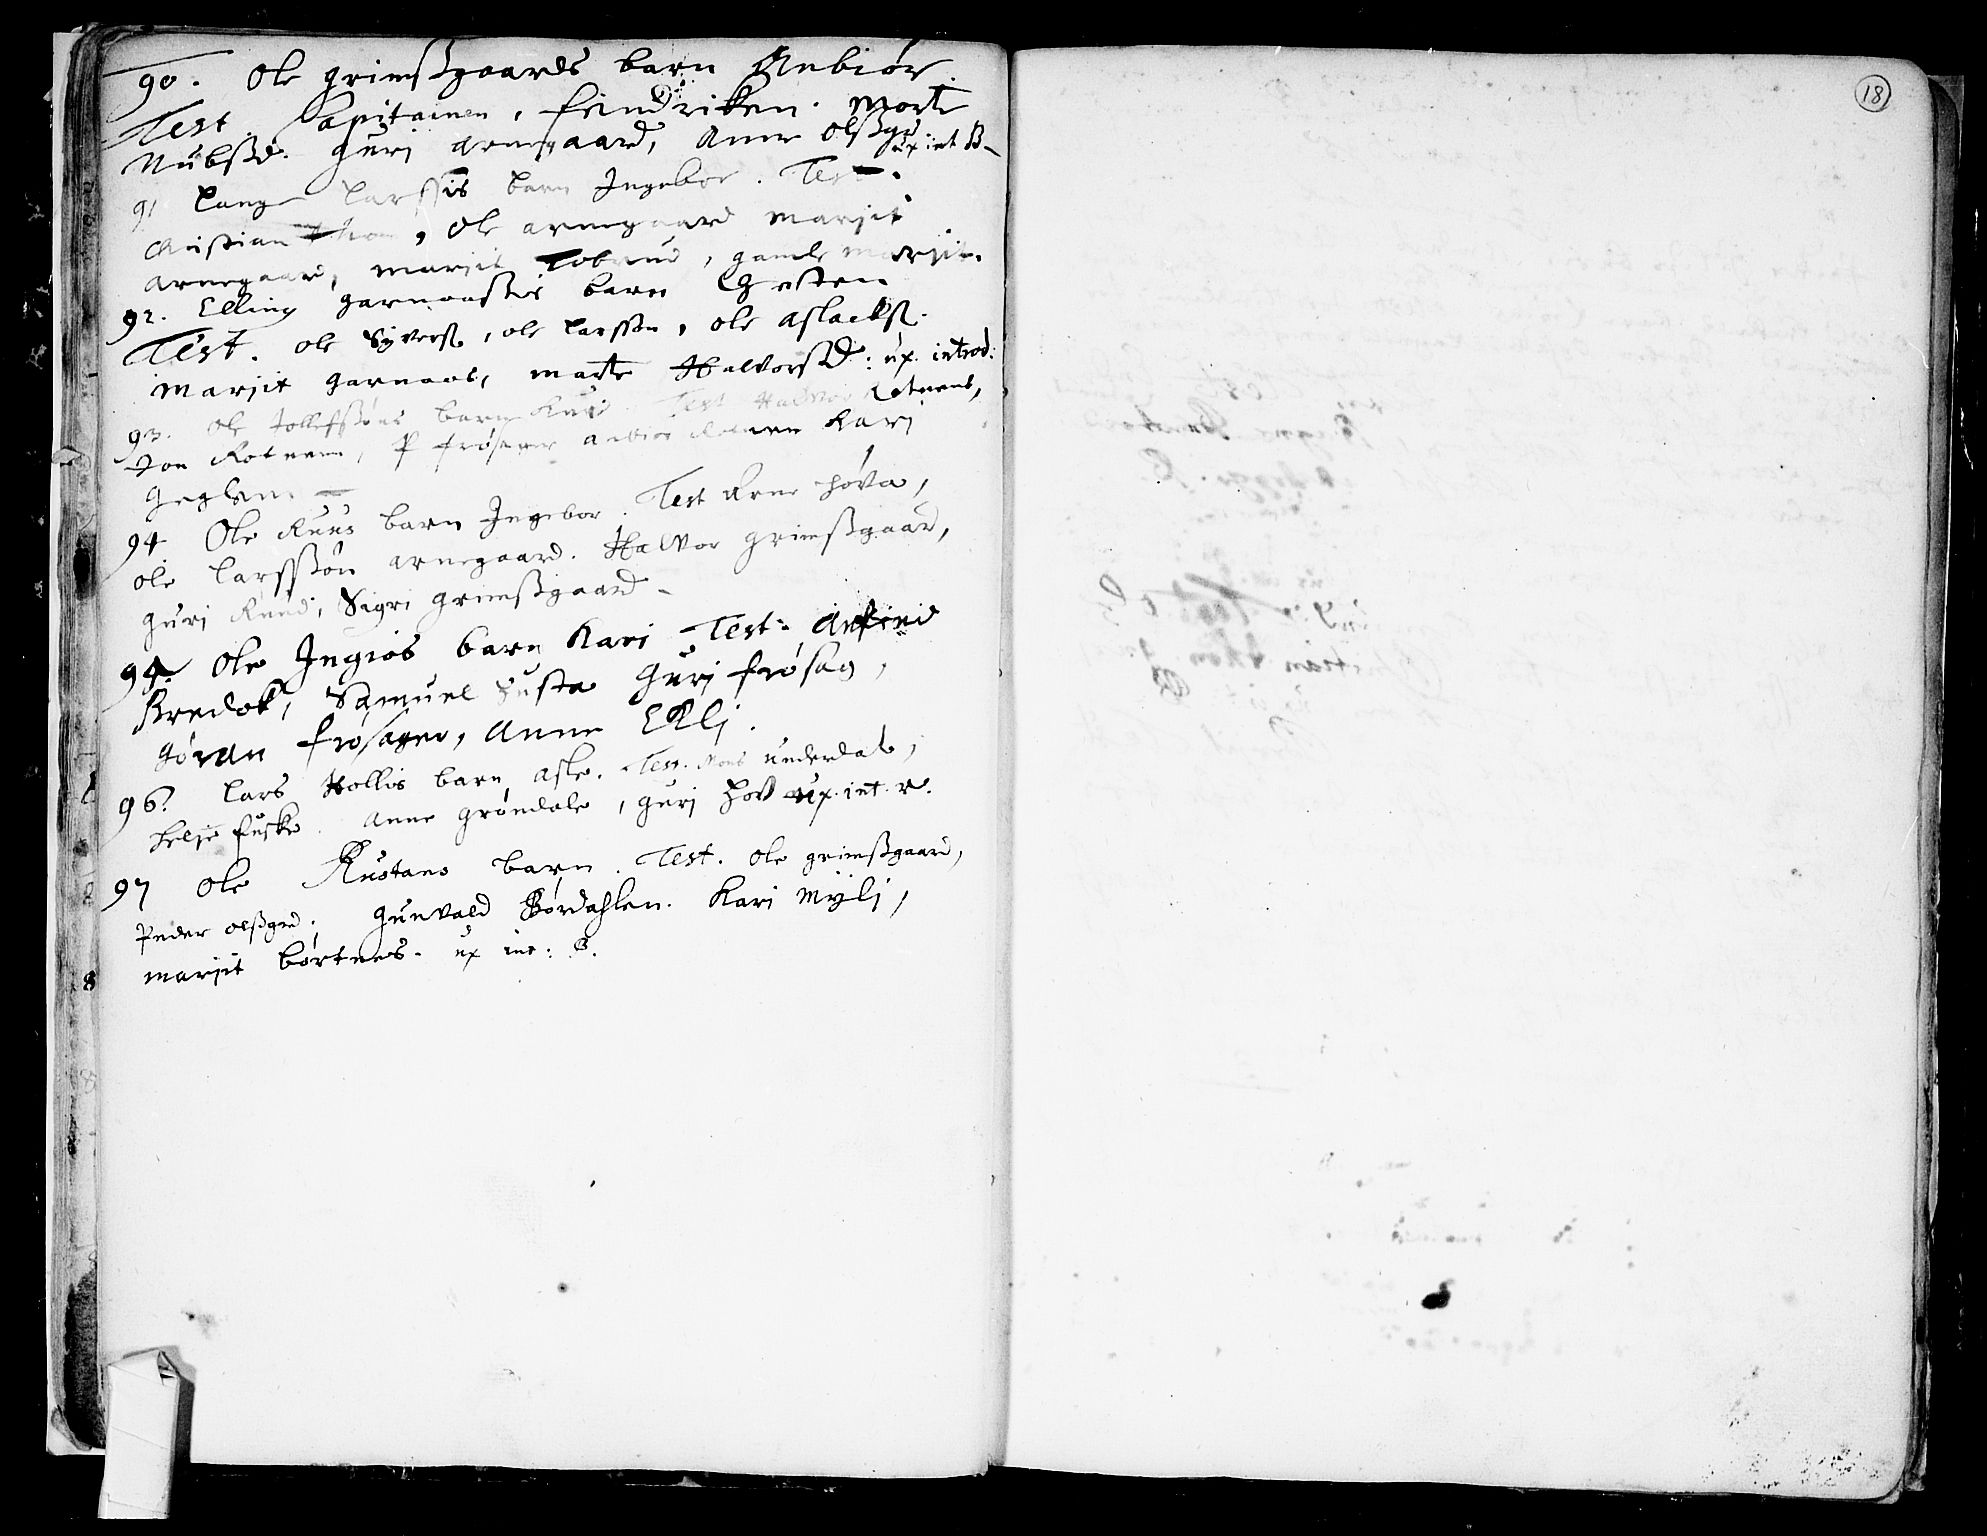 90. Ole grimsßgaards barn Anbiør
Test. Capitainen, feindriken. Morte
Nübsd. Guri arnegaard, Anne olsßgr. ux int B-
91 Lange Larssis barn Ingebor. Test.
Christian, Ole arnegaard Marjit
arnegaard, marjit Tobrud, gamle Marjit.
92. Elling garnaasis barn Gresten
Test. ole Syvers, ole Larssøn, ole aslacks.
Marjit garnaas, marte Halvorsd: ux. introd:
93. Ole Tollefssøns barn Test Halvor Rotnens,
Jon Rotnem, P frøsager Anbior Kari
Geglem.
94. Ole Ruus barn Ingebor. Test Arne høva,
ole Larsssøn arnegaard. Halvor grimsßgaard,
Guri Ruud, Sigri grimsßgaard -
95. Ole Ingiøs barn Kari Test. Arfind
Bredok, Samuel Gusta Guri frøsag,
Jøran frøsager, Anne Ekli.
96. Lars Hollis barn Asle. Test. Mons underdal,
helje fuske. Anne grøndale, guri hov ux. int. r.
97 Ole Rustans barn. Test. Ole grimsßgaard,
Peder olsßgrd; Gunvald Børdahlen. Kari Myli,
marjit børtnes. ux int: B.
18